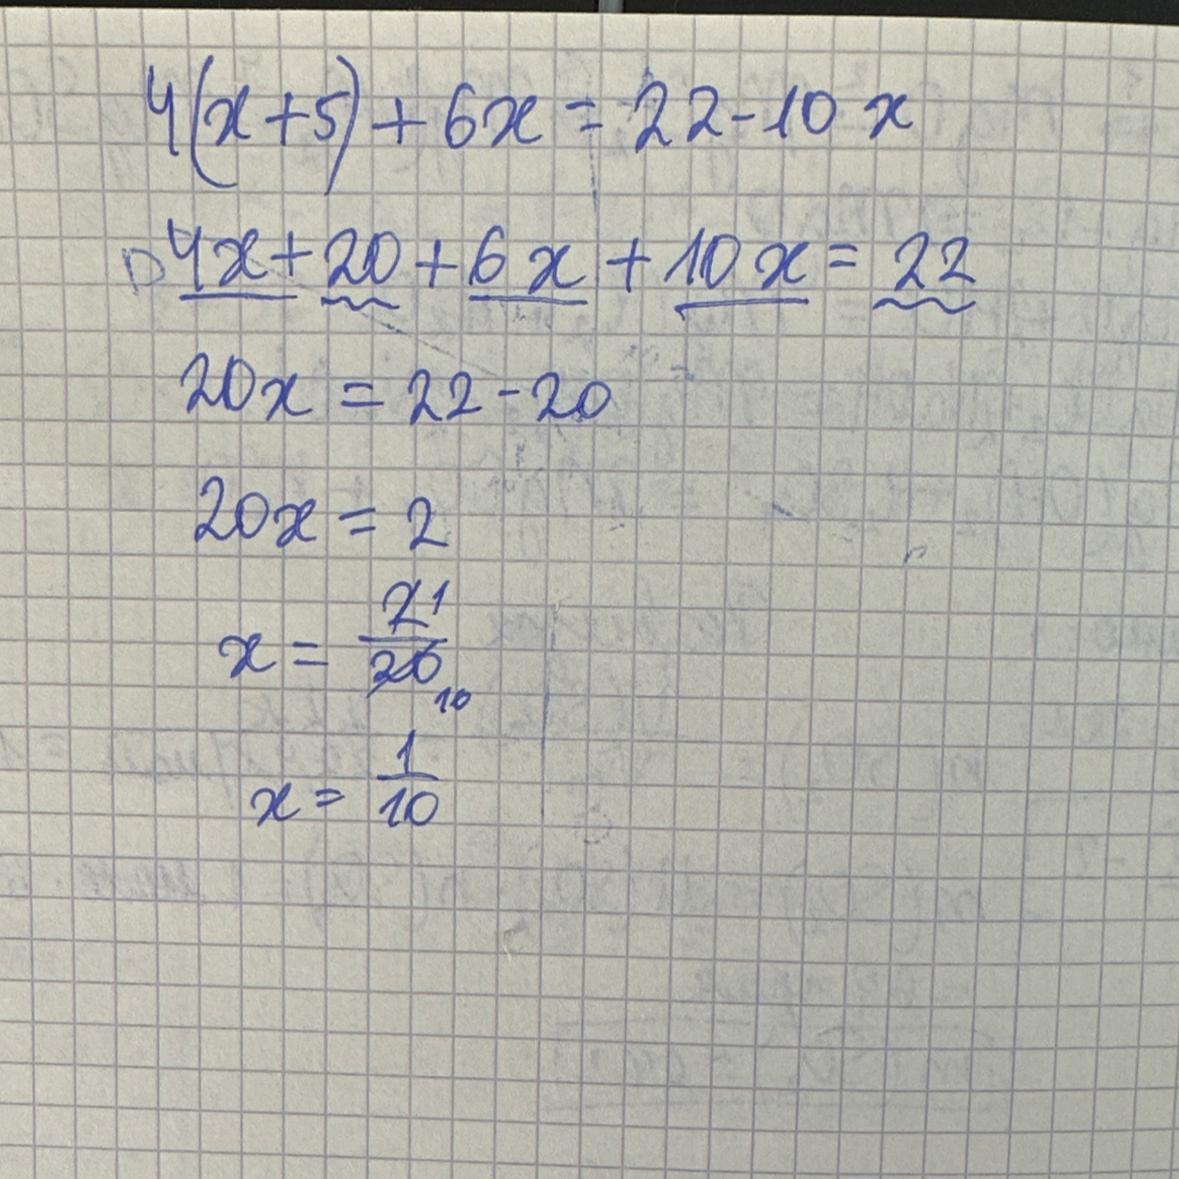 4(x+5)+6x=22-10x
4x+20+6x+10x=22
20x=22-20
20x=2
x=2/20 1 10
x=1/10